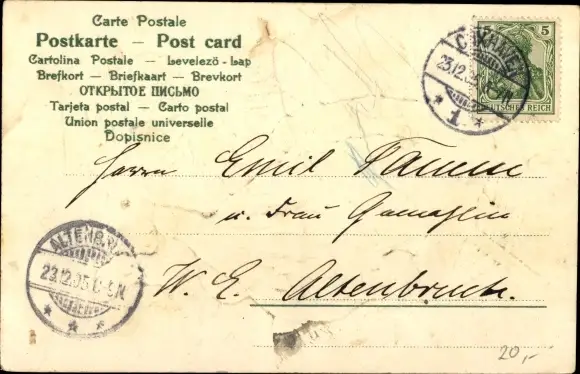 Carte Postale
Postkarte — Post card
Cartolina Postale — Levelezö-Lap
Brefkort — Briefkaart — Brevkort
ОТКРЫТОЕ ПИСЬМО
Tarjeta postal — Carto postal
Union postale universelle
Dopisnice
5
DEUTSCHES REICH
CUXHAVEN
23.12.05
1
Herrn Emil Tamm
u. Frau Gemahlin
ALTENB
23.12.05
N
W. E. Altenbruch.
20,-